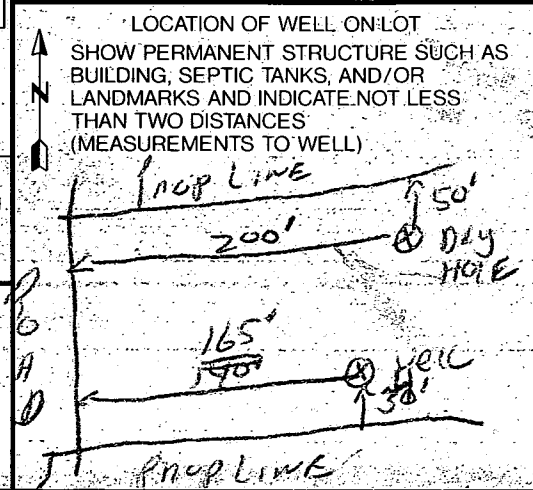 LOCATION OF WELL ON LOT
SHOW PERMANENT STRUCTURE SUCH AS
BUILDING, SEPTIC TANKS, AND/OR
LANDMARKS AND INDICATE NOT LESS
THAN TWO DISTANCES
(MEASUREMENTS TO WELL)
N
Prop LINE
50'
200'
Dry
HOLE
ROAD
165'
190'
Well
30'
Prop LINE